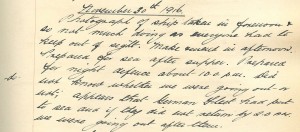 November 20th 1916
Photograph of ship taken in forenoon &
so not much doing as everyone had to
keep out of sight. Make and in afternoon.
Prepared for sea after supper. Prepared
for night defence about 10.0 p.m. Did
not know whether we were going out or
not; appears that German fleet had put
to sea and if they did not return by 8.0 a.m.
we were going out after them.